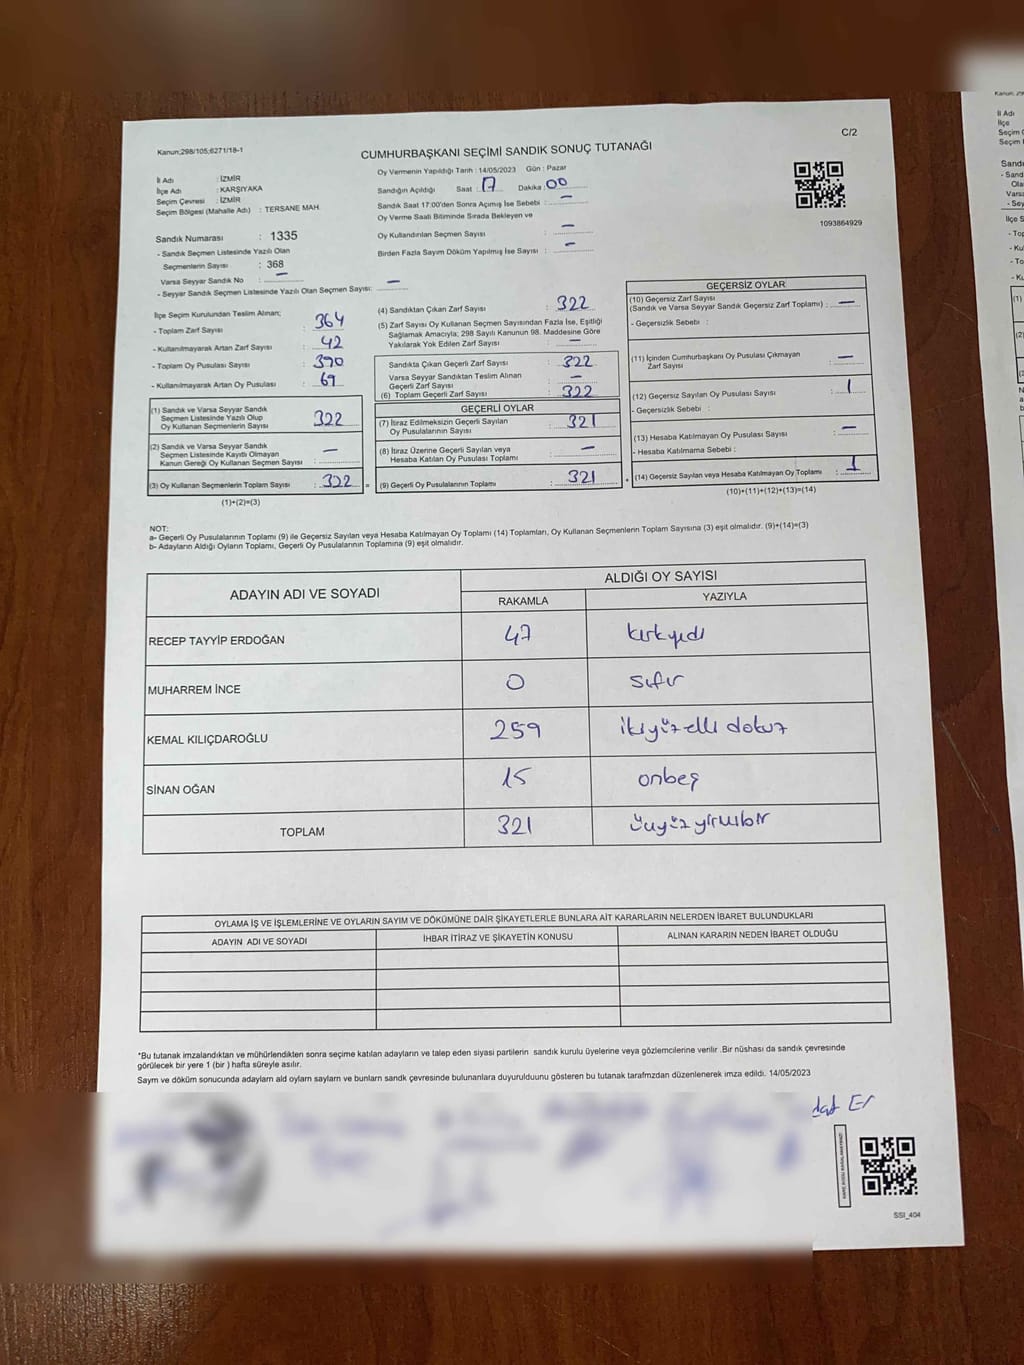 Kanun:298/105;6271/18-1
C/2
CUMHURBAŞKANI SEÇİMİ SANDIK SONUÇ TUTANAĞI
İl Adı : İZMİR
İlçe Adı : KARŞIYAKA
Seçim Çevresi : İZMİR
Seçim Bölgesi (Mahalle Adı) : TERSANE MAH.
Sandık Numarası : 1335
- Sandık Seçmen Listesinde Yazılı Olan
Seçmenlerin Sayısı : 368
Varsa Seyyar Sandık No : —
- Seyyar Sandık Seçmen Listesinde Yazılı Olan Seçmen Sayısı: —
Oy Vermenin Yapıldığı Tarih : 14/05/2023 Gün : Pazar
Sandığın Açıldığı Saat : 17 Dakika : 00
Sandık Saat 17:00'den Sonra Açımış İse Sebebi : —
Oy Verme Saati Bitiminde Sırada Bekleyen ve
Oy Kullandırılan Seçmen Sayısı : —
Birden Fazla Sayım Döküm Yapılmış İse Sayısı : —
1093864929
İlçe Seçim Kurulundan Teslim Alınan;
- Toplam Zarf Sayısı : 364
- Kullanılmayarak Artan Zarf Sayısı : 42
- Toplam Oy Pusulası Sayısı : 390
- Kullanılmayarak Artan Oy Pusulası : 69
(1) Sandık ve Varsa Seyyar Sandık
Seçmen Listesinde Yazılı Olup
Oy Kullanan Seçmenlerin Sayısı : 322
(2) Sandık ve Varsa Seyyar Sandık
Seçmen Listesinde Kayıtlı Olmayan
Kanun Gereği Oy Kullanan Seçmen Sayısı : —
(3) Oy Kullanan Seçmenlerin Toplam Sayısı : 322 =
(1)+(2)=(3)
(4) Sandıktan Çıkan Zarf Sayısı : 322
(5) Zarf Sayısı Oy Kullanan Seçmen Sayısından Fazla İse, Eşitliği
Sağlamak Amacıyla; 298 Sayılı Kanunun 98. Maddesine Göre
Yakılarak Yok Edilen Zarf Sayısı : —
Sandıkta Çıkan Geçerli Zarf Sayısı : 322
Varsa Seyyar Sandıktan Teslim Alınan
Geçerli Zarf Sayısı : —
(6) Toplam Geçerli Zarf Sayısı : 322
GEÇERLİ OYLAR
(7) İtiraz Edilmeksizin Geçerli Sayılan
Oy Pusulalarının Sayısı : 321
(8) İtiraz Üzerine Geçerli Sayılan veya
Hesaba Katılan Oy Pusulası Toplamı : —
(9) Geçerli Oy Pusulalarının Toplamı : 321 +
GEÇERSİZ OYLAR
(10) Geçersiz Zarf Sayısı
(Sandık ve Varsa Seyyar Sandık Geçersiz Zarf Toplamı) : —
- Geçersizlik Sebebi :
(11) İçinden Cumhurbaşkanı Oy Pusulası Çıkmayan
Zarf Sayısı : —
(12) Geçersiz Sayılan Oy Pusulası Sayısı : 1
- Geçersizlik Sebebi :
(13) Hesaba Katılmayan Oy Pusulası Sayısı : —
- Hesaba Katılmama Sebebi :
(14) Geçersiz Sayılan veya Hesaba Katılmayan Oy Toplamı : 1
(10)+(11)+(12)+(13)=(14)
NOT:
a- Geçerli Oy Pusulalarının Toplamı (9) ile Geçersiz Sayılan veya Hesaba Katılmayan Oy Toplamı (14) Toplamları, Oy Kullanan Seçmenlerin Toplam Sayısına (3) eşit olmalıdır. (9)+(14)=(3)
b- Adayların Aldığı Oyların Toplamı, Geçerli Oy Pusulalarının Toplamına (9) eşit olmalıdır.
ADAYIN ADI VE SOYADI ALDIĞI OY SAYISI
RAKAMLA YAZIYLA
RECEP TAYYİP ERDOĞAN 47 kırkyedi
MUHARREM İNCE 0 sıfır
KEMAL KILIÇDAROĞLU 259 ikiyüzelli dokuz
SİNAN OĞAN 15 onbeş
TOPLAM 321 üçyüz yirmibir
OYLAMA İŞ VE İŞLEMLERİNE VE OYLARIN SAYIM VE DÖKÜMÜNE DAİR ŞİKAYETLERLE BUNLARA AİT KARARLARIN NELERDEN İBARET BULUNDUKLARI
ADAYIN ADI VE SOYADI İHBAR İTİRAZ VE ŞİKAYETİN KONUSU ALINAN KARARIN NEDEN İBARET OLDUĞU
*Bu tutanak imzalandıktan ve mühürlendikten sonra seçime katılan adayların ve talep eden siyasi partilerin sandık kurulu üyelerine veya gözlemcilerine verilir .Bir nüshası da sandık çevresinde
görülecek bir yere 1 (bir ) hafta süreyle asılır.
Sayım ve döküm sonucunda adayların ald oyların sayların ve bunların sandk çevresinde bulunanlara duyurulduunu gösteren bu tutanak tarafmzdan düzenlenerek imza edildi. 14/05/2023
SSI_404
İl Adı
İlçe